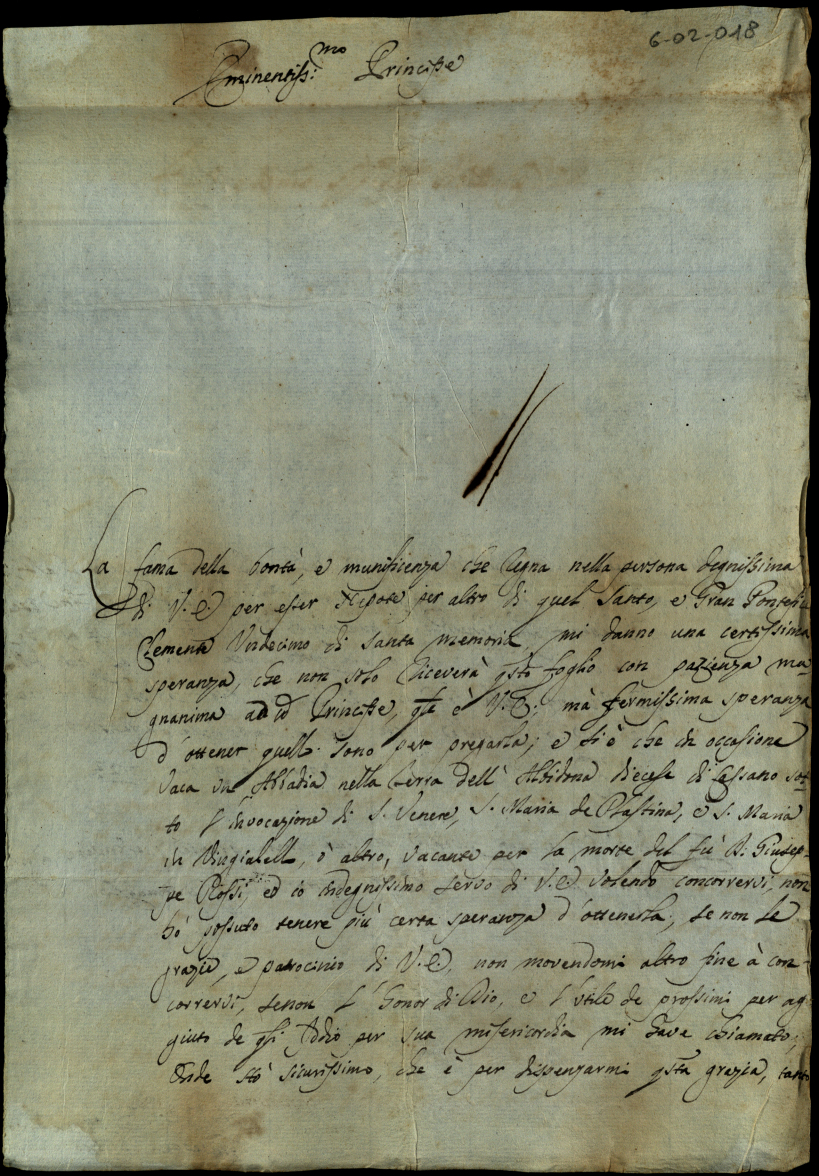 6-02-018
Eminentiss:mo Principe
La fama della bontà, e munificenza che regna nella persona degnissima
di V. E. per esser Nepote per altro di quel Santo, e Gran Pontefi
Clemente Undecimo di santa memoria, mi danno una certissima
speranza, che non solo riceverà qsto foglio con pazienza ma-
gnanima ad Principe, qle è V. E; mà fermissima speranza
d'ottener quell. sono per pregarla; e si è che in occasione
Vaca un Abbadia nella terra dell' Albidona diecese di Cassano sot-
to l'invocazione di S. Venere, S. Maria de Plastina, e S. Maria
in ò altro, vacante per la morte del fù D. Giusep-
pe Rossi, ed io indegnissimo servo di V. E. volendo concorrervi, non
hò possuto tenere più certa speranza d'ottenerla, se non le
grazie, e patrocinio di V. E, non movendomi altro fine à con-
corrervi, senon l'Honor di Dio, e l'utile de prossimi per ag-
giuto de qsi. Iddio per sua misericordia mi have chiamato;
Onde stò sicurissimo, che è per dispenzarmi qsta grazia, tanto